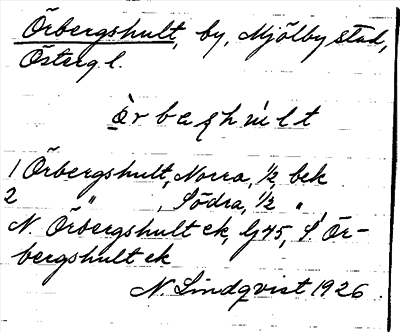 Örbergshult, by, Mjölby stad,
Östergl.
1 Örbergshult, Norra, ½, bek
2 " , Södra, ½ "
N. Örbergshult ek, G45, S. Ör-
bergshult ek
N. Lindqvist 1926